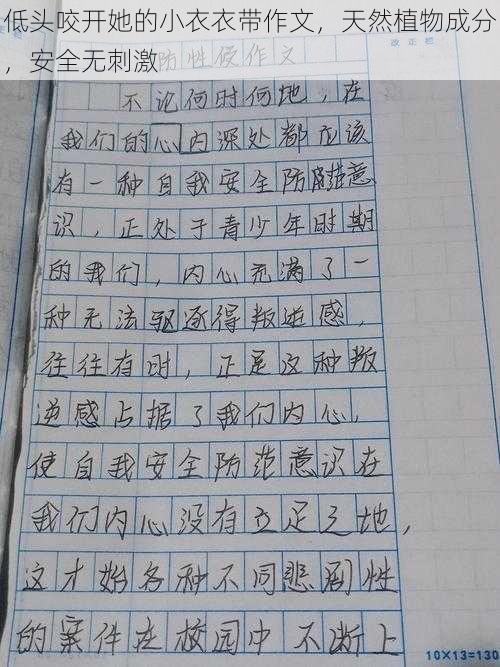 低头咬开她的小衣衣带作文，天然植物成分
，安全无刺激
防性侵作文
改正栏
不论何时何地，在
我们的心内深处都应该
有一种自我安全防范意
识，正处于青少年时期
的我们，内心充满了一
种无法驱逐得叛逆感，
往往有时，正是这种叛
逆感占据了我们内心，
使自我安全防范意识在
我们内心没有立足之地，
这才始各种不同悲剧性
的案件在校园中不断上
10×13=130